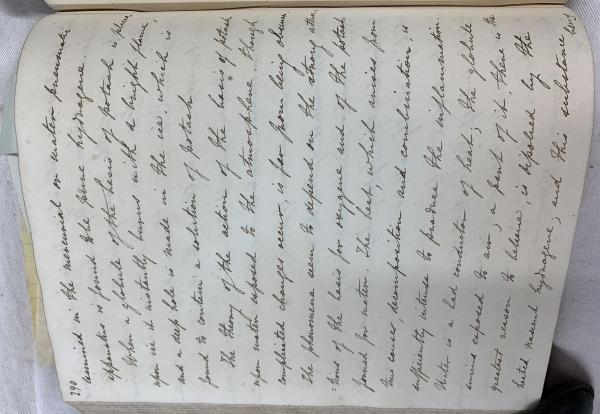 290
examined in the mercurial or water pneumatic
apparatus is found to be pure hydrogene.
When a globule of the basis of potash is placed
upon ice it instantly burns with a bright flame,
and a deep hole is made in the ice which is
found to contain a solution of potash.
The theory of the action of the basis of potash
upon water exposed to the atmosphere though
complicated changes occur, is far from being obscure
The phenomena seem to depend on the strong attrac
=tions of the basis for oxygene and of the potash
formed for water. The heat, which arises from
two causes decomposition and combination, is
sufficiently intense to produce the inflammation.
Water is a bad conductor of heat; the globule
swims exposed to air; a part of it there is the
greatest reason to believe, is dissolved by the
heated nascent hydrogene; and this substance